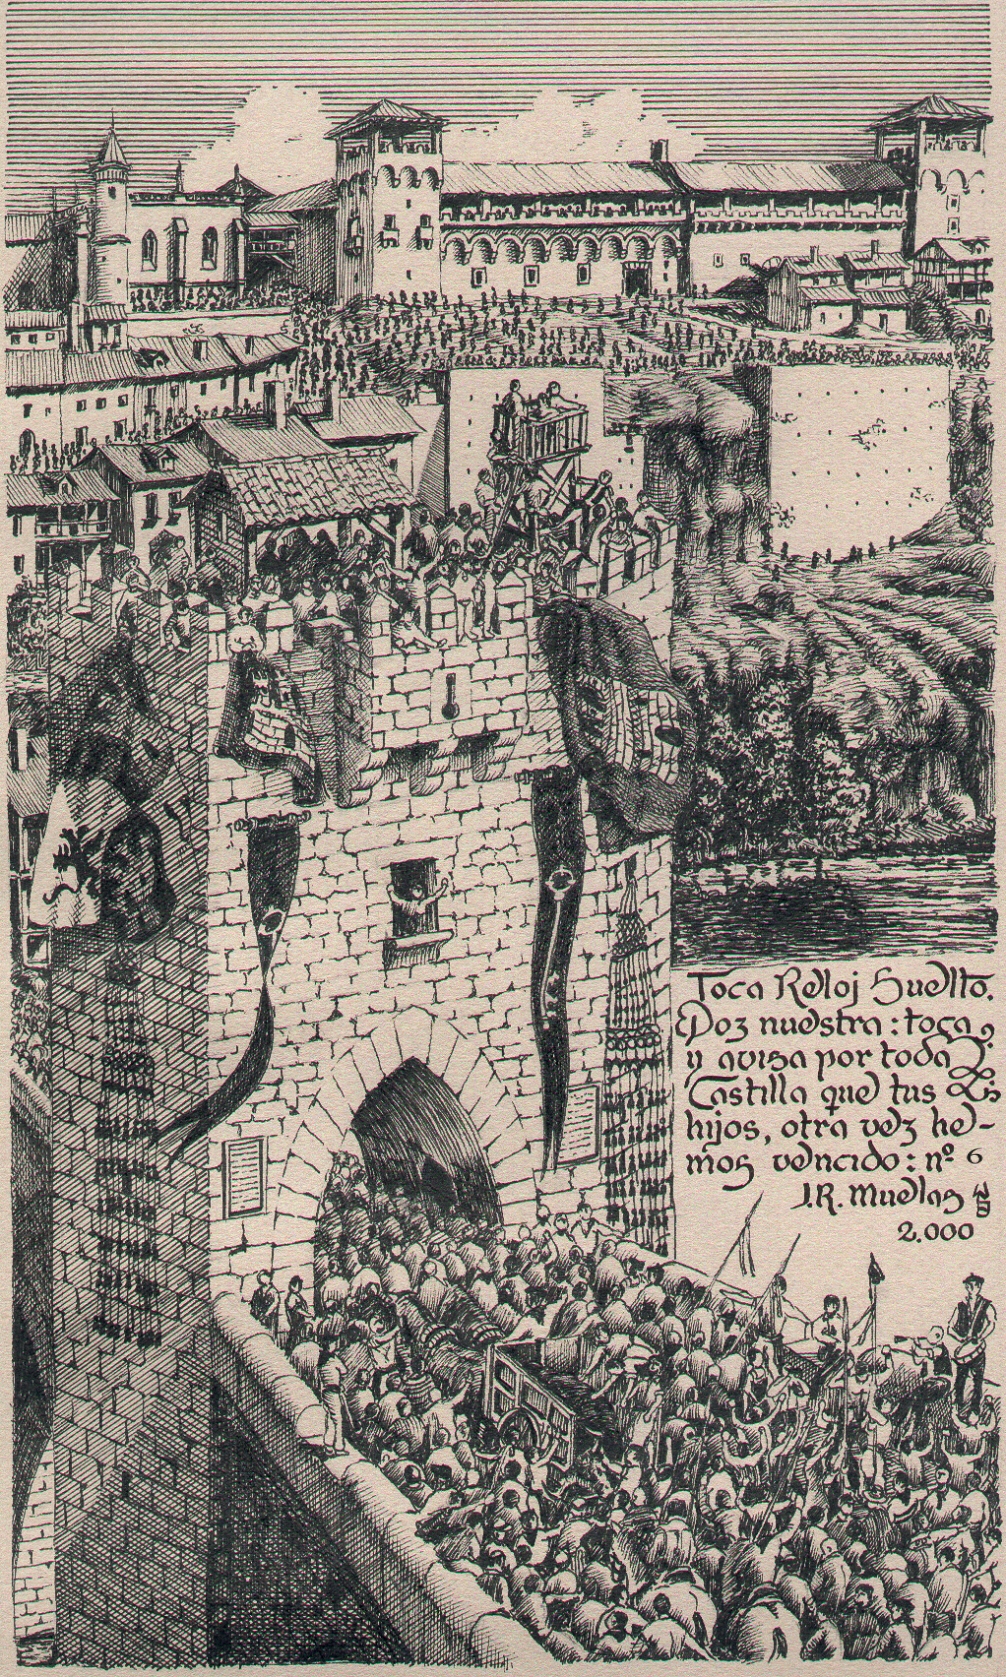 Toca Reloj Suelto.
Voz nuestra: toca,
y avisa por toda
Castilla que tus
hijos, otra vez he-
mos vencido: nº 6
J.R. Muelas
2.000